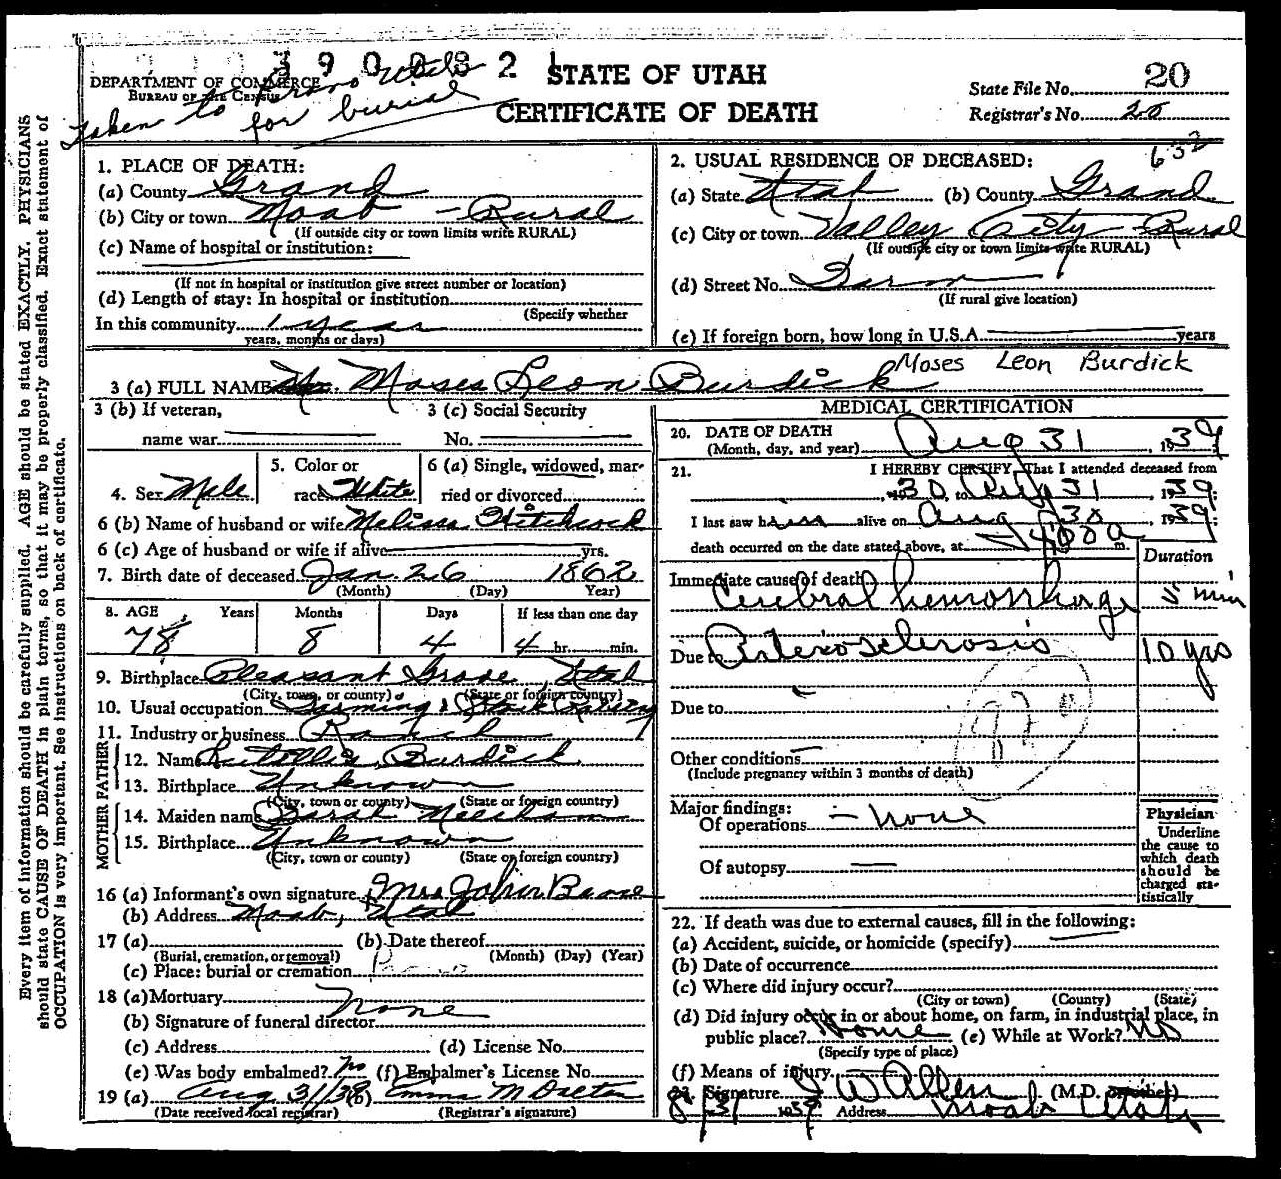 390032
DEPARTMENT OF COMMERCE
BUREAU OF THE CENSUS
Taken to Provo Utah
for burial
STATE OF UTAH
CERTIFICATE OF DEATH
State File No. 20
Registrar's No. 20
632
Every item of information should be carefully supplied. AGE should be stated EXACTLY. PHYSICIANS
should state CAUSE OF DEATH in plain terms, so that it may be properly classified. Exact statement of
OCCUPATION is very important. See instructions on back of certificate.
1. PLACE OF DEATH:
(a) County Grand
(b) City or town Moab - Rural
(If outside city or town limits write RURAL)
(c) Name of hospital or institution:
(If not in hospital or institution give street number or location)
(d) Length of stay: In hospital or institution
(Specify whether
In this community 1 year
years, months or days)
2. USUAL RESIDENCE OF DECEASED:
(a) State Utah (b) County Grand
(c) City or town Valley City Rural
(If outside city or town limits write RURAL)
(d) Street No. Farm
(If rural give location)
(e) If foreign born, how long in U.S.A. years
3 (a) FULL NAME Moses Leon Burdick
Moses Leon Burdick
3 (b) If veteran,
name war
3 (c) Social Security
No.
4. Sex Male
5. Color or
race White
6 (a) Single, widowed, mar-
ried or divorced
6 (b) Name of husband or wife Melissa Hitchcock
6 (c) Age of husband or wife if alive yrs.
7. Birth date of deceased Jan. 26 1862
(Month) (Day) Year)
8. AGE Years Months Days If less than one day
78 8 4 4 hr. min.
9. Birthplace Pleasant Grove Utah
(City, town, or county) (State or foreign country)
10. Usual occupation Farming & Stock
11. Industry or business Ranch
FATHER
12. Name Burdick
13. Birthplace Unknown
(City, town or county) (State or foreign country)
MOTHER
14. Maiden name Sarah Meecham
15. Birthplace Unknown
(City, town or county) (State or foreign country)
16 (a) Informant's own signature Mrs John
(b) Address Moab, Utah
17 (a) (b) Date thereof
(Burial, cremation, or removal) (Month) (Day) (Year)
(c) Place: burial or cremation Provo
18 (a) Mortuary None
(b) Signature of funeral director
(c) Address (d) License No.
(e) Was body embalmed? No (f) Embalmer's License No.
19 (a) Aug 31/39 (b) Emma M Dalton
(Date received local registrar) (Registrar's signature)
MEDICAL CERTIFICATION
20. DATE OF DEATH
(Month, day, and year) Aug 31, 1939
21. I HEREBY CERTIFY, That I attended deceased from
30, to Aug 31, 1939;
I last saw him alive on Aug 30, 1939;
death occurred on the date stated above, at 400 a m.
Duration
Immediate cause of death
Cerebral hemorrhage 5 min
Due to Arteriosclerosis 10 yrs
Due to
Other conditions
(Include pregnancy within 3 months of death)
Major findings:
Of operations - none
Of autopsy
Physician
Underline
the cause to
which death
should be
charged sta-
tistically
22. If death was due to external causes, fill in the following:
(a) Accident, suicide, or homicide (specify)
(b) Date of occurrence
(c) Where did injury occur?
(City or town) (County) (State)
(d) Did injury occur in or about home, on farm, in industrial place, in
public place? Home (e) While at Work? No
(Specify type of place)
(f) Means of injury
23. Signature I W Allen (M.D. or other)
8/31 1939 Address Moab Utah